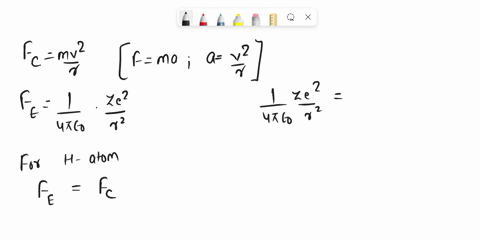 F_C = mv²/r [F = ma ; a = v²/r]
F_E = 1/4πε₀ · ze²/r²
1/4πε₀ ze²/r² =
For H-atom
F_E = F_C